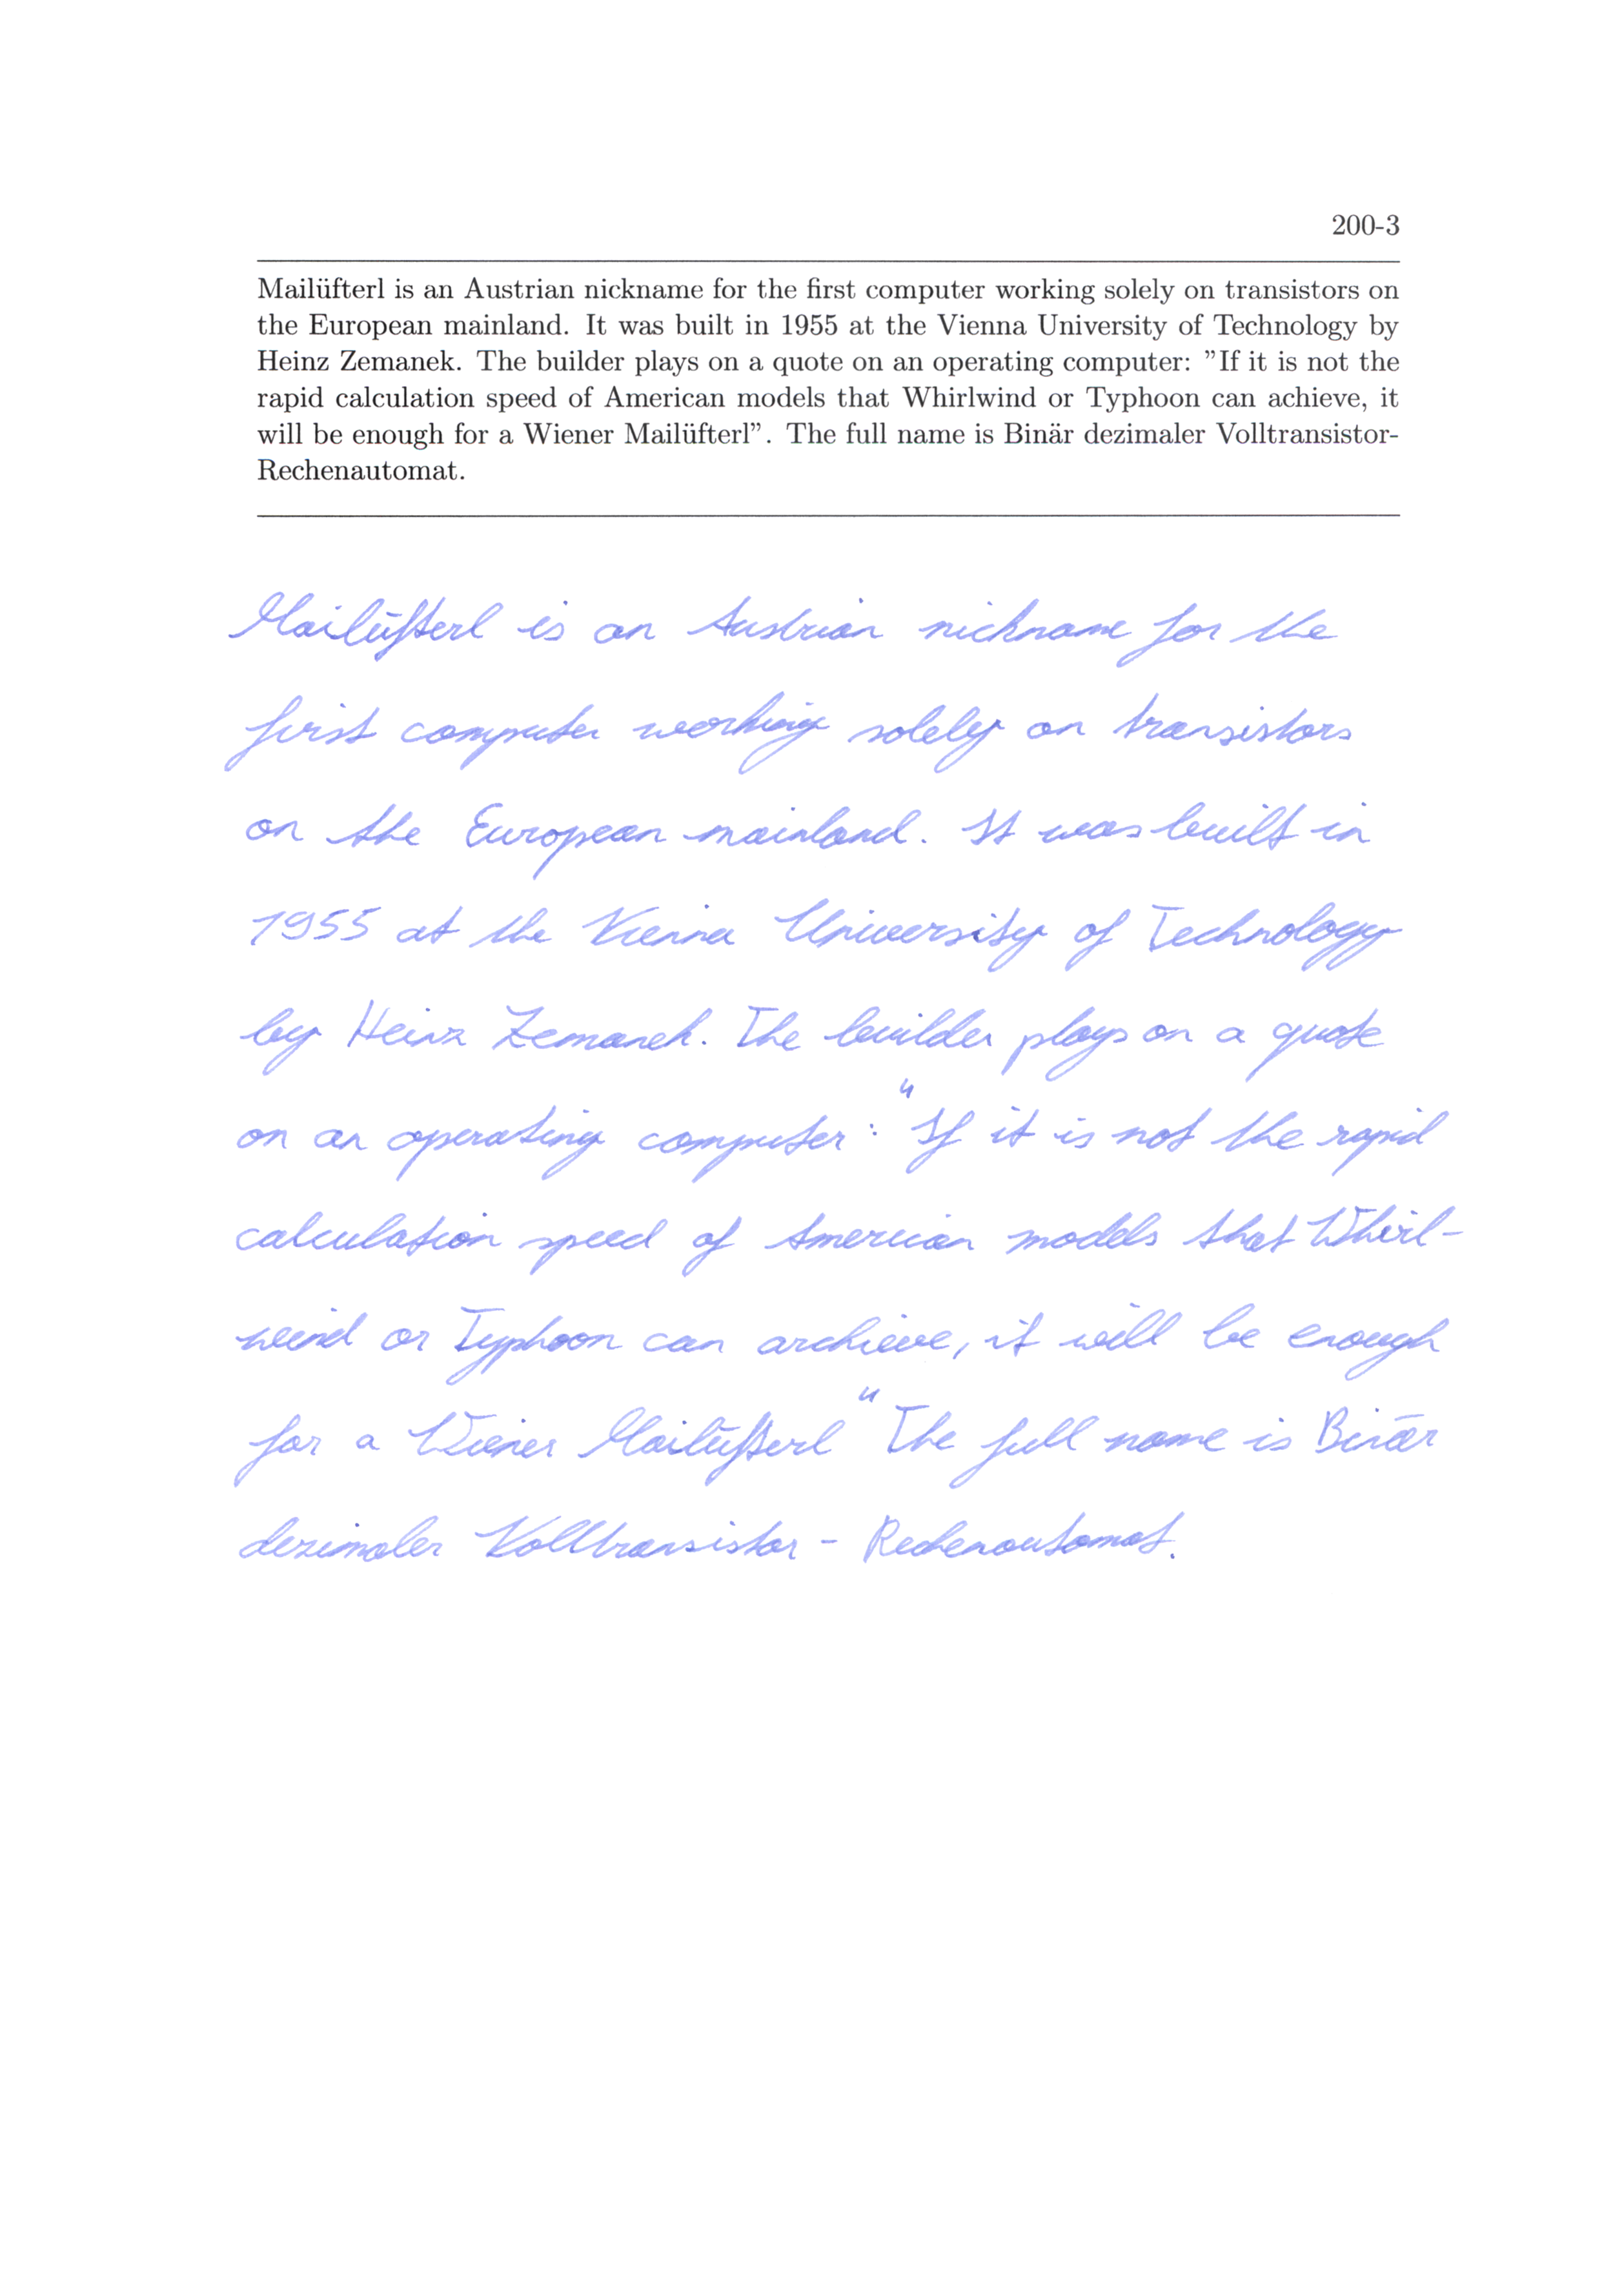 200-3
Mailüfterl is an Austrian nickname for the first computer working solely on transistors on
the European mainland. It was built in 1955 at the Vienna University of Technology by
Heinz Zemanek. The builder plays on a quote on an operating computer: ”If it is not the
rapid calculation speed of American models that Whirlwind or Typhoon can achieve, it
will be enough for a Wiener Mailüfterl”. The full name is Binär dezimaler Volltransistor-
Rechenautomat.
Mailüfterl is an Austrian nickname for the
first computer working solely on transistors
on the European mainland. It was built in
1955 at the Vienna University of Technology
by Heinz Zemanek. The builder plays on a quote
on an operating computer: "If it is not the rapid
calculation speed of American models that Whirl-
wind or Typhoon can archieve, it will be enough
for a Wiener Mailüfterl" The full name is Binär
dezimaler Volltransistor - Rechenautomat.